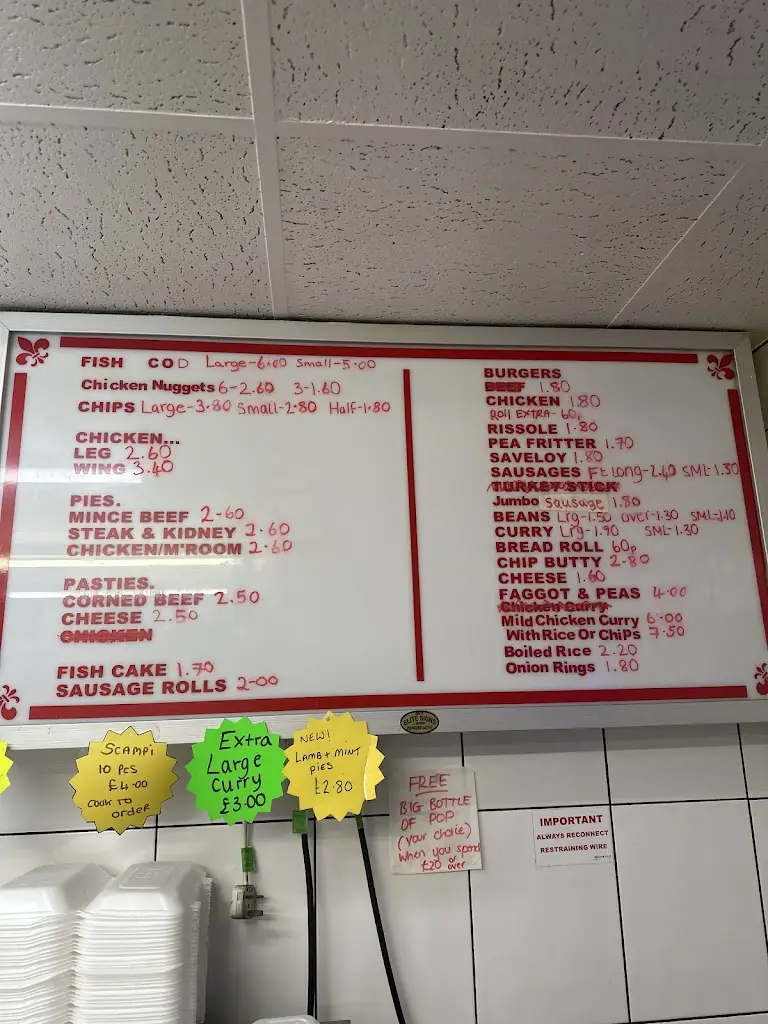 FISH COD Large-6.00 Small-5.00
Chicken Nuggets 6-2.60 3-1.60
CHIPS Large-3.80 Small-2.80 Half-1.80
CHICKEN...
LEG 2.60
WING 3.40
PIES.
MINCE BEEF 2-60
STEAK & KIDNEY 2.60
CHICKEN/M'ROOM 2.60
PASTIES.
CORNED BEEF 2.50
CHEESE 2.50
CHICKEN
FISH CAKE 1.70
SAUSAGE ROLLS 2-00
BURGERS
BEEF 1.80
CHICKEN 1.80
Roll EXTRA- 60p
RISSOLE 1.80
PEA FRITTER 1.70
SAVELOY 1.80
SAUSAGES Ft Long-2.40 SML-1.30
TURKEY STICK
Jumbo Sausage 1.80
BEANS Lrg-1.50 over-1.30 SML-1.10
CURRY Lrg-1.90 SML-1.30
BREAD ROLL 60p
CHIP BUTTY 2-80
CHEESE 1.60
FAGGOT & PEAS 4.00
Chicken Curry
Mild Chicken Curry 6-00
With Rice Or Chips 7.50
Boiled Rice 2.20
Onion Rings 1.80
ELITE SIGNS
SCAMPi
10 PCS
£4.00
COOK TO
order
Extra
Large
Curry
£3.00
NEW!
LAMB + MINT
PIES
£2.80
FREE
BIG BOTTLE
OF POP
(your choice)
When you spend
£20 or over
IMPORTANT
ALWAYS RECONNECT
RESTRAINING WIRE